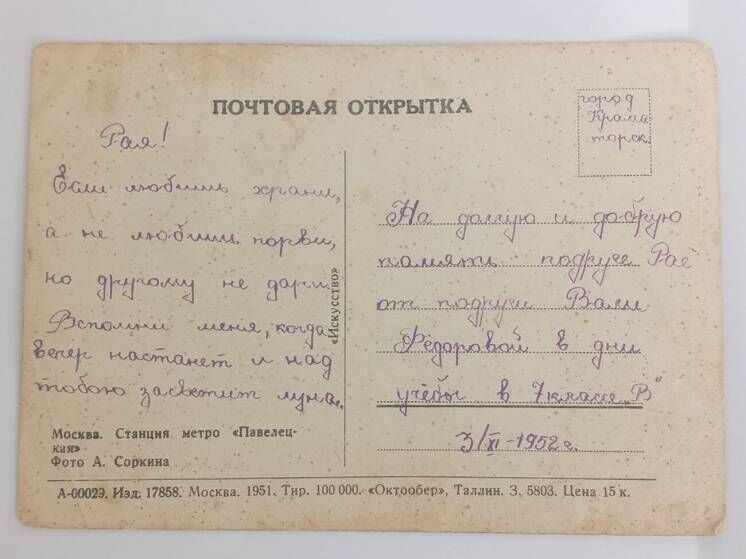 ПОЧТОВАЯ ОТКРЫТКА
город
Крама-
торск.
Рая!
Если любишь храни,
а не любишь порви,
но другому не дари.
Вспомни меня, когда
вечер настанет и над
тобою засветит луна.
«Искусство»
На долгую и добрую
память подруге Рае
от подруги Вали
Фёдоровой в дни
учёбы в 7 классе „В"
3/XI-1952 г.
Москва. Станция метро «Павелец-
кая»
Фото А. Соркина
А-00029. Изд. 17858. Москва. 1951. Тир. 100 000. «Октообер», Таллин. З. 5803. Цена 15 к.